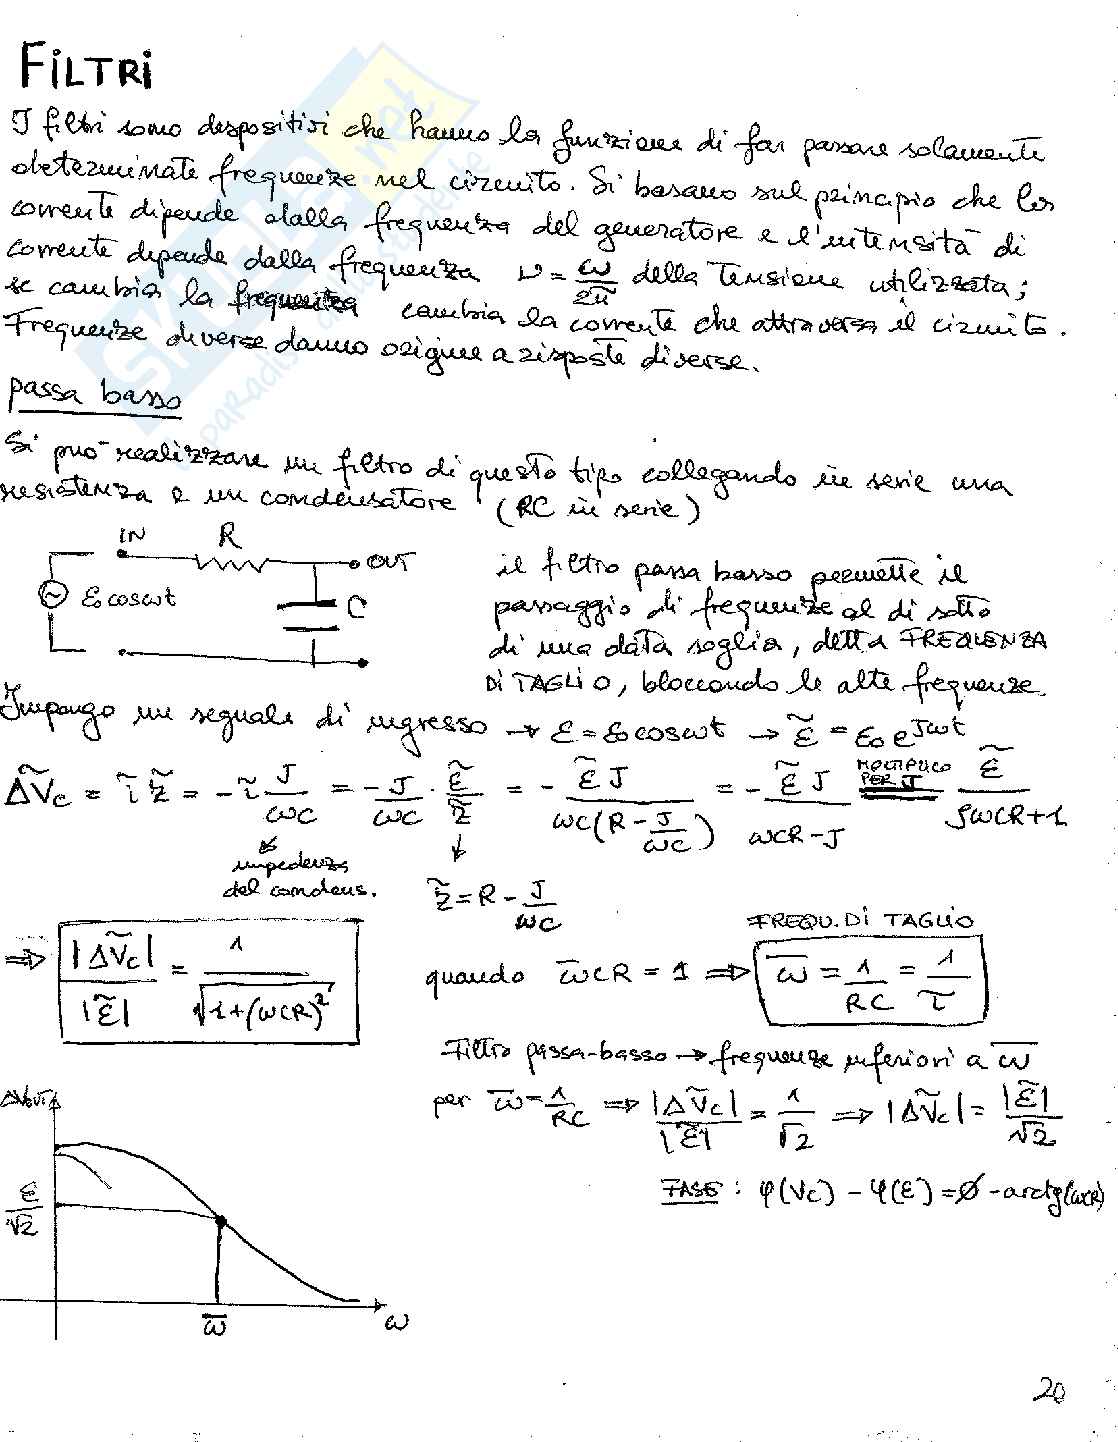 FILTRI
I filtri sono dispositivi che hanno la funzione di far passare solamente
determinate frequenze nel circuito. Si basano sul principio che la
corrente dipende dalla frequenza del generatore e l'intensità di
corrente dipende dalla frequenza ν = ω/2π della tensione utilizzata;
se cambia la frequenza cambia la corrente che attraversa il circuito.
Frequenze diverse danno origine a risposte diverse.
passa basso
Si può realizzare un filtro di questo tipo collegando in serie una
resistenza e un condensatore (RC in serie)
IN R OUT
ε₀cosωt C
il filtro passa basso permette il
passaggio di frequenze al di sotto
di una data soglia, detta FREQUENZA
DI TAGLIO, bloccando le alte frequenze.
Impongo un segnale di ingresso → ε = ε₀cosωt → ε̃ = ε₀ e^{Jωt}
ΔṼc = ĩ z̃ = -ĩ J/ωC = -J/ωC · ε̃/z̃ = - ε̃J/ωC(R - J/ωC) = - ε̃J/ωCR-J = MOLTIPLICO PER J ε̃/JωCR+1
impedenza
del condens.
z̃ = R - J/ωC
FREQU. DI TAGLIO
⇒ |ΔṼc|/|ε̃| = 1/√1+(ωCR)²
quando ω̄CR = 1 ⇒ ω̄ = 1/RC = 1/τ
Filtro passa-basso → frequenze inferiori a ω̄
per ω̄ = 1/RC ⇒ |ΔṼc|/|ε̃| = 1/√2 ⇒ |ΔṼc| = |ε̃|/√2
FASE: φ(Vc) - φ(ε) = Ø - arctg(ωCR)
ΔVout
ε/√2
ω̄ ω
20